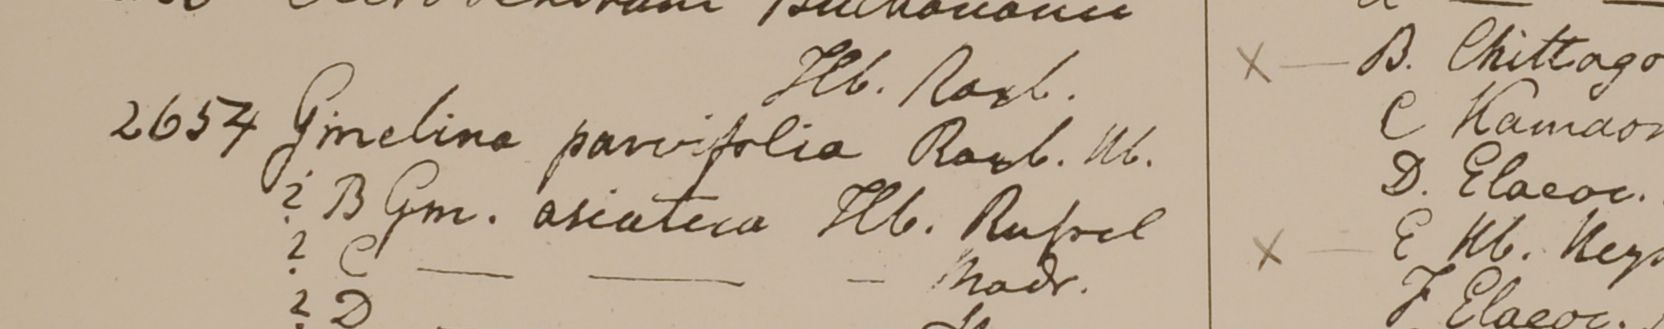 Buchanani
Hb. Roxb.
2654 Gmelina parvifolia Roxb. Hb.
? B Gm. asiatica Hb. Russel
? C — — – Madr.
? D
X — B. Chittago
C Kamaon
D. Elaeoc.
X — E Hb. Heyn
F Elaeoc.